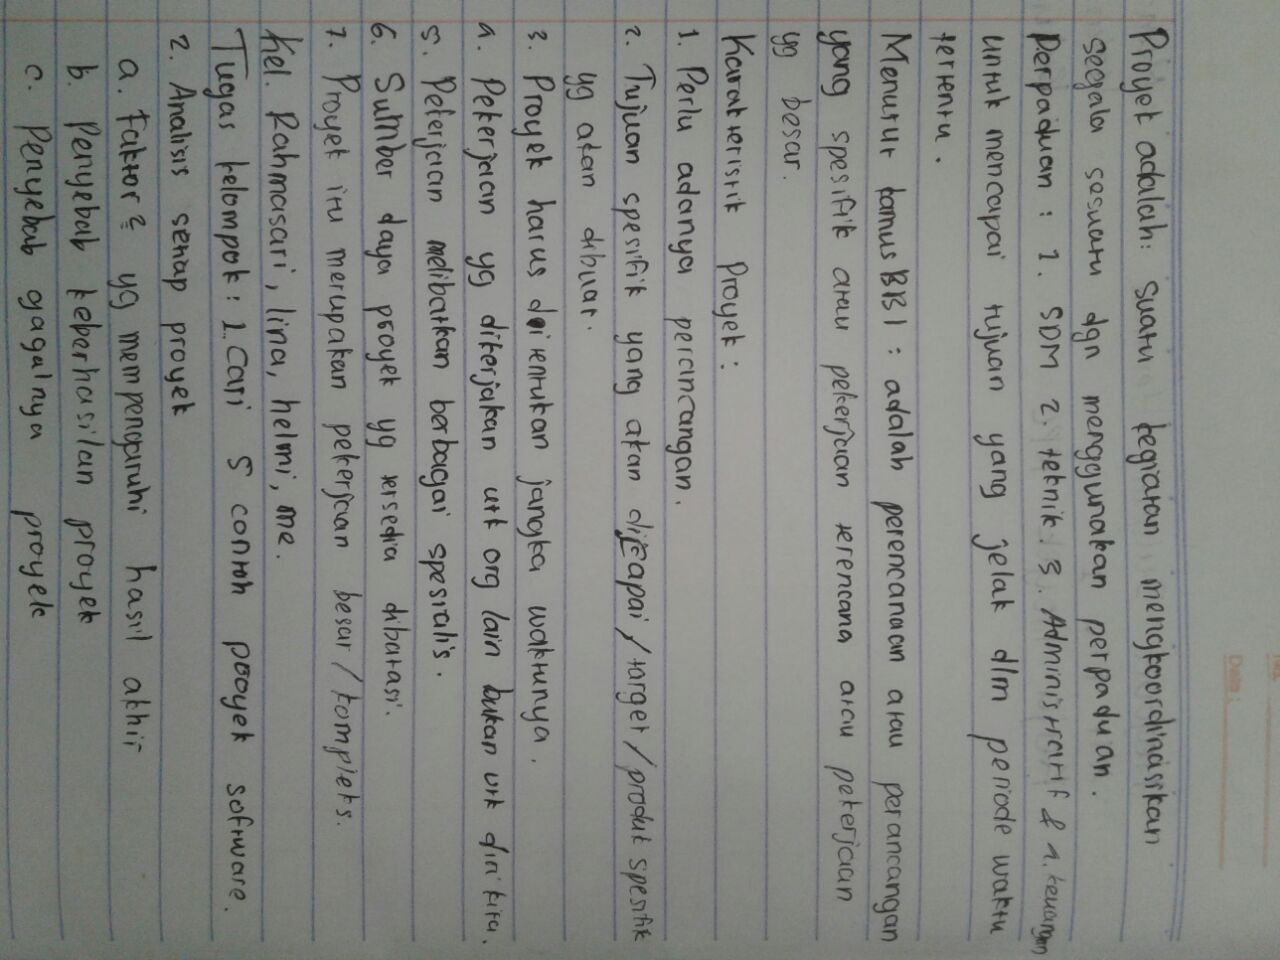 Date :
Proyek adalah : Suatu kegiatan mengkoordinasikan
segala sesuatu dgn menggunakan perpaduan.
Perpaduan : 1. SDM 2. teknik. 3. Administratif & 4. keuangan
untuk mencapai tujuan yang jelak dlm periode waktu
tertentu.
Menurut kamus BBI : adalah perencanaan atau perancangan
yang spesifik atau pekerjaan terencana atau pekerjaan
yg besar.
Karakteristik Proyek :
1. Perlu adanya perancangan.
2. Tujuan spesifik yang akan dicapai / target / produk spesifik
yg akan dibuat.
3. Proyek harus ditentukan jangka waktunya.
4. Pekerjaan yg dikerjakan utk org lain bukan utk diri kita.
5. Pekerjaan melibatkan berbagai spesialis.
6. Sumber daya proyek yg tersedia dibatasi.
7. Proyek itu merupakan pekerjaan besar / kompleks.
Kel. Rahmasari, lina, helmi, me.
Tugas kelompok : 1. Cari 5 contoh proyek software.
2. Analisis setiap proyek
a. Faktor2 yg mempengaruhi hasil akhir
b. Penyebab keberhasilan proyek
c. Penyebab gagalnya proyek